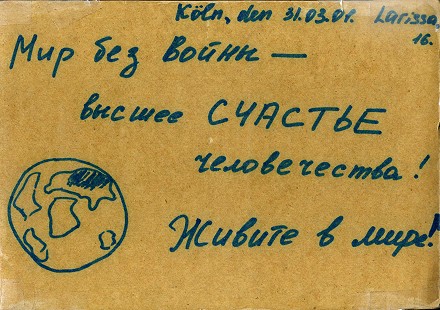 Köln, den 31.03.01. Larissa,
16.
Мир без войны —
высшее СЧАСТЬЕ
человечества!
Живите в мире!